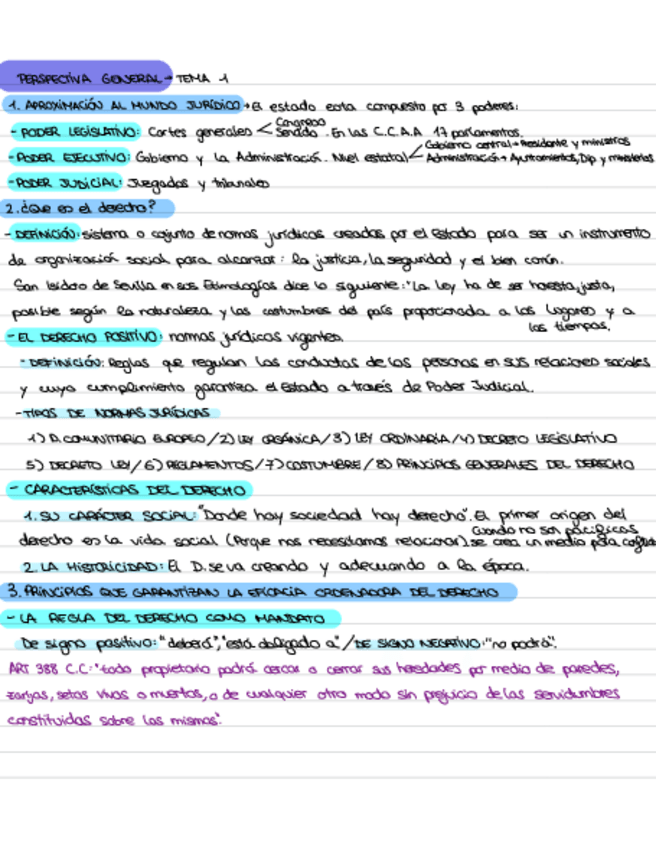 PERSPECTIVA GENERAL → TEMA 1
1. APROXIMACIÓN AL MUNDO JURÍDICO → El estado esta compuesto por 3 poderes:
- PODER LEGISLATIVO: Cortes generales < Congreso Senado. En las C.C.A.A 17 parlamentos.
- PODER EJECUTIVO: Gobierno y la Administración. Nivel estatal < Gobierno central → Presidente y ministros
Administración → Ayuntamientos, Dip y ministerios
- PODER JUDICIAL: Juzgados y tribunales
2. ¿Que es el derecho?
- DEFINICIÓN: sistema o cojunto de normas jurídicas creadas por el Estado para ser un instrumento
de organización social para alcanzar: la justicia, la seguridad y el bien común.
San Isidoro de Sevilla en sus Etimologías dice lo siguiente: "La ley ha de ser honesta, justa,
posible según la naturaleza y las costumbres del país proporcionada a los lugares y a
los tiempos.
- EL DERECHO POSITIVO: normas jurídicas vigentes.
- DEFINICIÓN: Reglas que regulan las conductas de las personas en sus relaciones sociales
y cuyo cumplimiento garantiza el Estado a través de Poder Judicial.
- TIPOS DE NORMAS JURÍDICAS
1) D. COMUNITARIO EUROPEO / 2) LEY ORGÁNICA / 3) LEY ORDINARIA / 4) DECRETO LEGISLATIVO
5) DECRETO LEY / 6) REGLAMENTOS / 7) COSTUMBRE / 8) PRINCIPIOS GENERALES DEL DERECHO
- CARACTERÍSTICAS DEL DERECHO
1. SU CARÁCTER SOCIAL: "Donde hay sociedad hay derecho". El primer origen del
cuando no son pacíficas
derecho es la vida social (Porque nos necesitamos relacionar). se crea un medio para
2. LA HISTORICIDAD: El D. se va creando y adecuando a la época.
3. PRINCIPIOS QUE GARANTIZAN LA EFICACIA ORDENADORA DEL DERECHO
- LA REGLA DEL DERECHO COMO MANDATO
De signo positivo: "deberá", "está obligado a" / DE SIGNO NEGATIVO: "no podrá".
ART 388 C.C: "todo propietario podrá cercar o cerrar sus heredades por medio de paredes,
zanjas, setos vivos o muertos, o de cualquier otro modo sin prejuicio de las servidumbres
constituidas sobre las mismas".